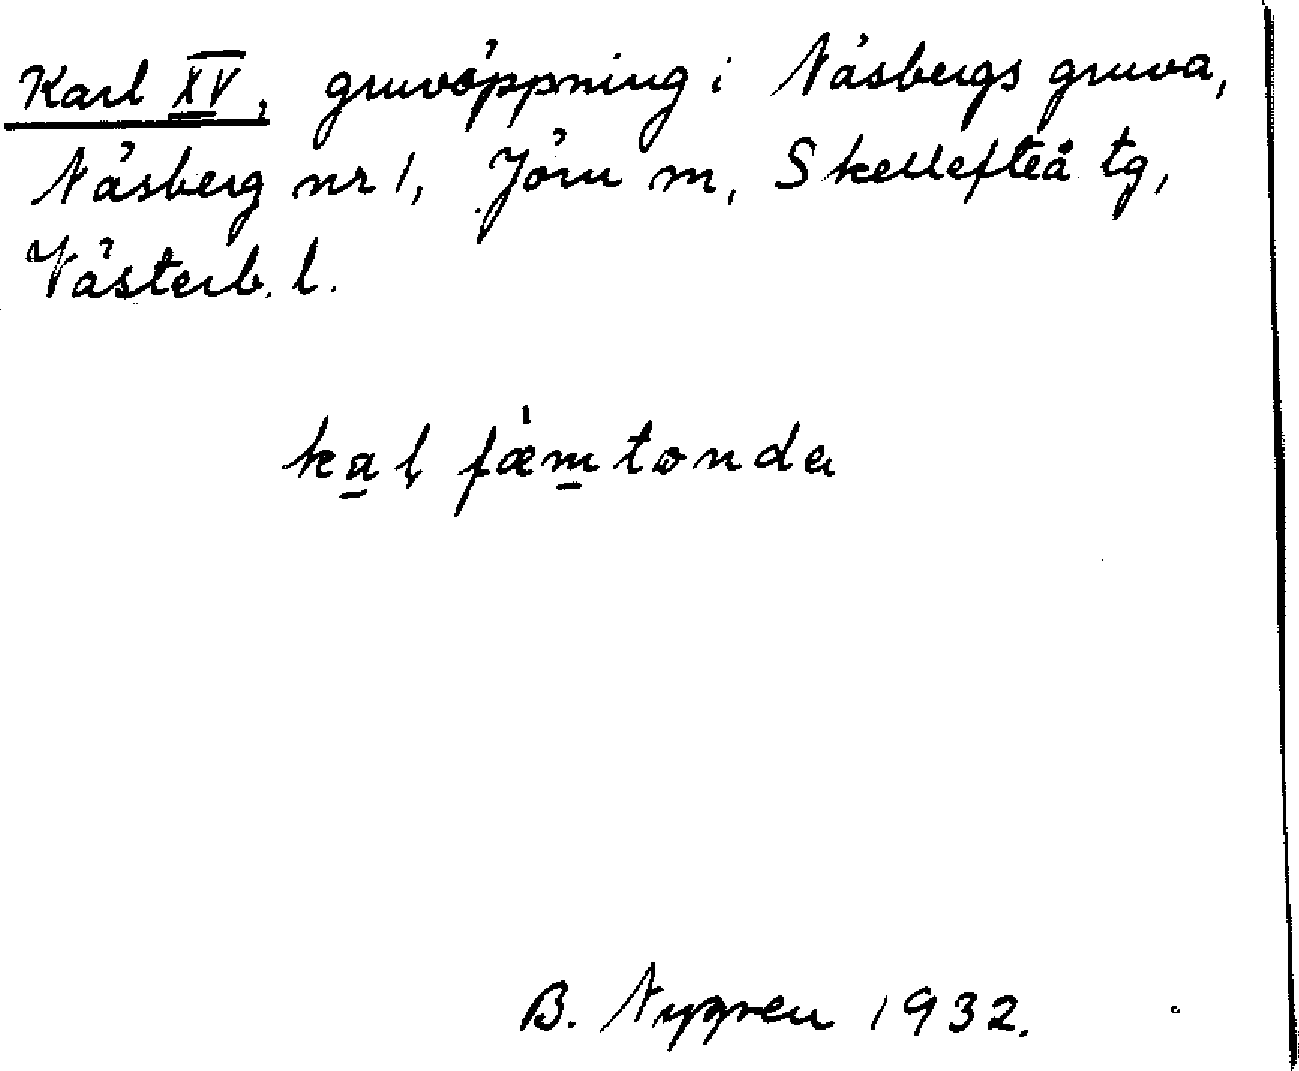 Karl XV, gruvöppning i Näsbergs gruva,
Näsberg nr 1, Jörn m, Skellefteå tg,
Västerb. l.
kaḷ fæ̀mtonda
B. Nygren 1932.